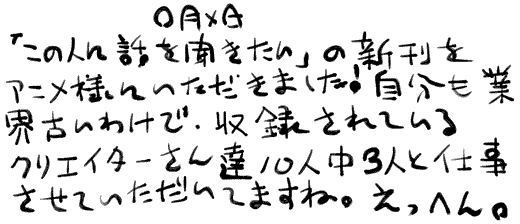 ○月×日
「この人に話を聞きたい」の新刊を
アニメ様にいただきました!自分も業
界古いわけで、収録されている
クリエイターさん達10人中3人と仕事
させていただいてますね。えっへん。